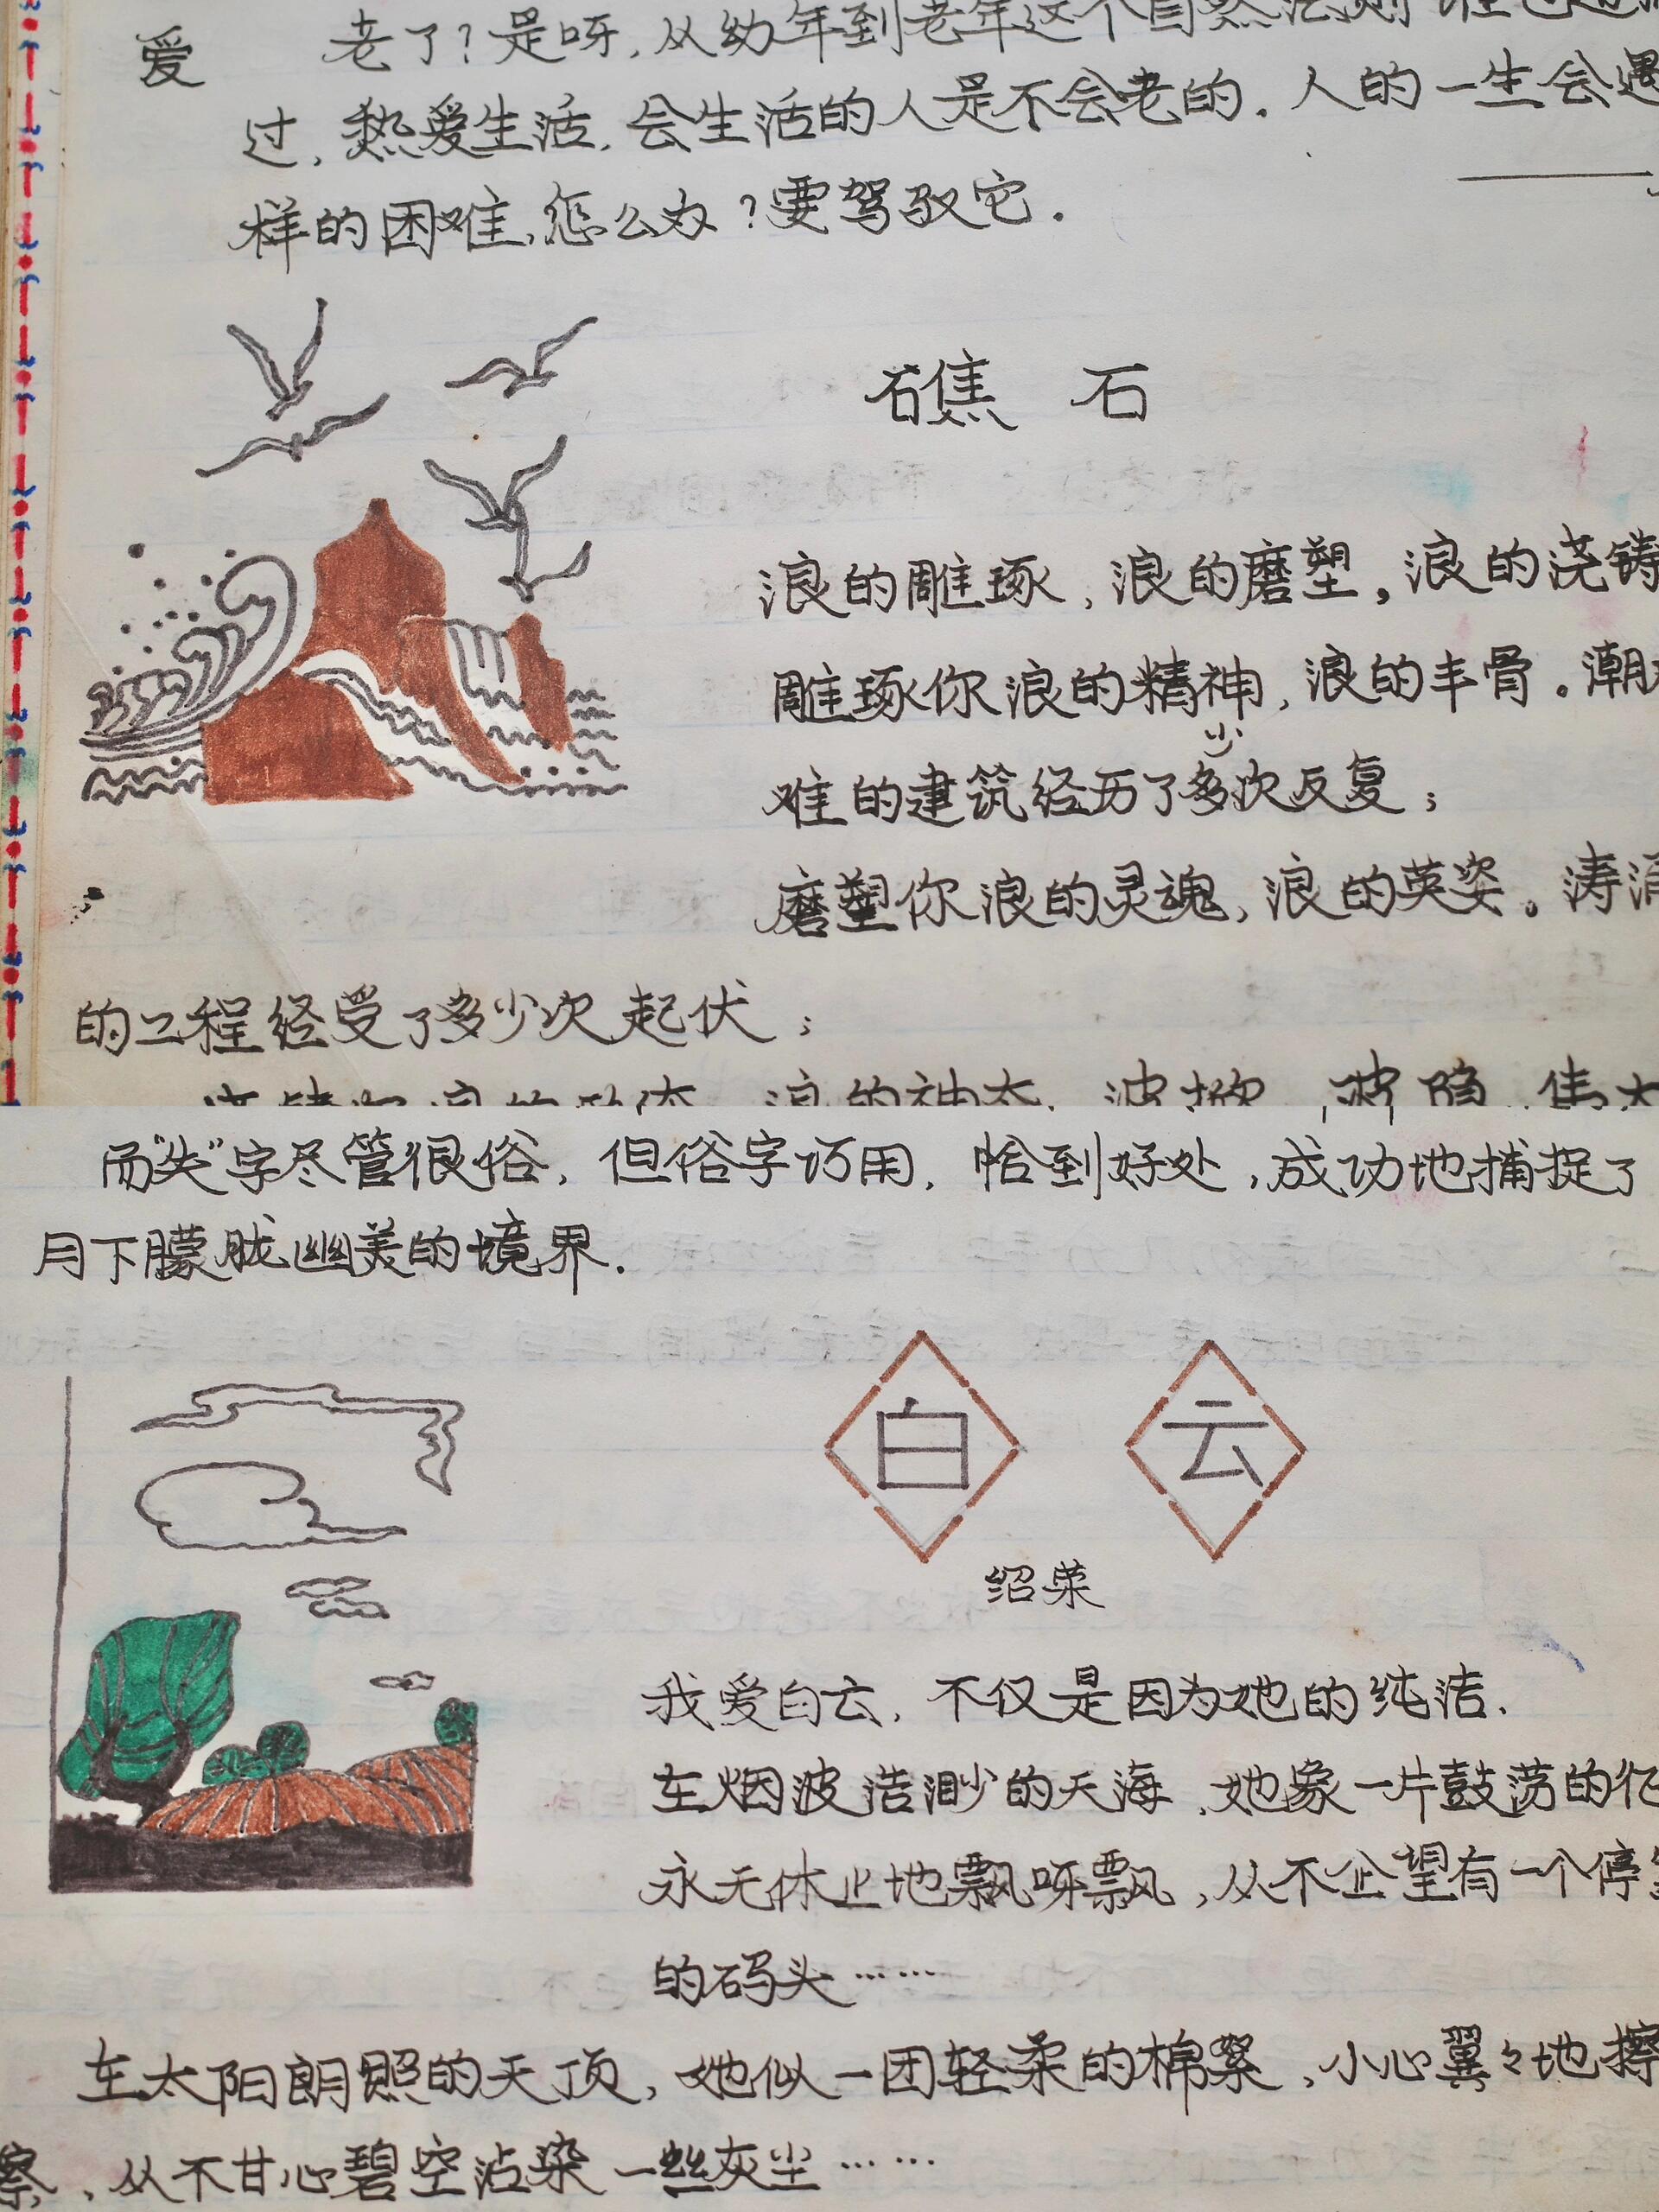 爱 老了?是呀,从幼年到老年这个自然法则谁也
过,热爱生活,会生活的人是不会老的.人的一生会遇
样的困难,怎么办?要驾驭它.
礁 石
浪的雕琢,浪的磨塑。浪的浇铸
雕琢你浪的精神,浪的丰骨。潮
少
难的建筑经历了多次反复;
磨塑你浪的灵魂,浪的英姿。涛涌
的工程经受了多少次起伏;
浪的神态,波掀
而"失"字尽管很俗,但俗字巧用,恰到好处,成功地捕捉了
月下朦胧幽美的境界.
白 云
绍荣
我爱白云,不仅是因为她的纯洁.
在烟波浩渺的天海,她象一片鼓荡的
永无休止地飘呀飘,从不企望有一个停
的码头……
在太阳朗照的天顶,她似一团轻柔的棉絮,小心翼々地擦
察,从不甘心碧空沾染一丝灰尘……